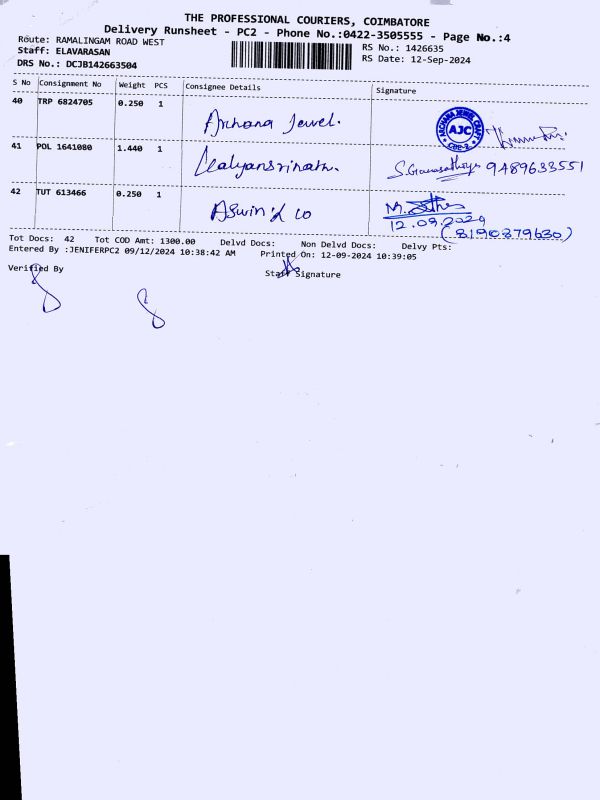 THE PROFESSIONAL COURIERS, COIMBATORE
Delivery Runsheet - PC2 - Phone No.:0422-3505555 - Page No.:4
Route: RAMALINGAM ROAD WEST
Staff: ELAVARASAN
DRS No.: DCJB142663504
RS No.: 1426635
RS Date: 12-Sep-2024
S No Consignment No Weight PCS Consignee Details Signature
40 TRP 6824705 0.250 1 Archana Jewel.
ARCHANA JEWEL CRAFT
AJC
CBE-2
41 POL 1641080 1.440 1 Kalyansrinath. 9489633551
42 TUT 613466 0.250 1 Aswin & co
12.09.2024
(8190879630)
Tot Docs: 42 Tot COD Amt: 1300.00 Delvd Docs: Non Delvd Docs: Delvy Pts:
Entered By :JENIFERPC2 09/12/2024 10:38:42 AM Printed On: 12-09-2024 10:39:05
Verified By Staff Signature